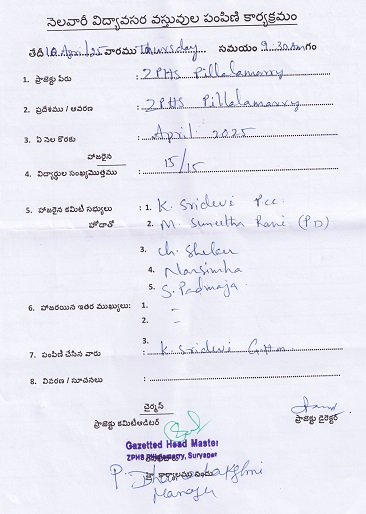 నెలవారీ విద్యావసర వస్తువుల పంపిణి కార్యక్రమం
తేదీ 10 April 25 వారము Thursday సమయం 9.30am గం
1. ప్రాజెక్టు పేరు : ZPHS Pillalamarry
2. ప్రదేశము / ఆవరణ : ZPHS Pillalamarry
3. ఏ నెల కొరకు : April 2025
హాజరైన
4. విద్యార్థుల సంఖ్యమొత్తము : 15/15
5. హాజరైన కమిటి సభ్యులు : 1. K. Sridevi Pcc
హోదాతో 2. M. Suneetha Rani (PD)
3. Ch. Shekar
4. Narsimha
5. S. Padmaja
6. హాజరయిన ఇతర ముఖ్యులు: 1. -
2. -
3.
7. పంపిణి చేసిన వారు : K Sridevi
8. వివరణ / సూచనలు :
చైర్మన్
ప్రాజెక్టు కమిటిఆడిటర్
ప్రాజెక్టు డైరెక్టర్
Gazetted Head Master
ZPHS Pillalamarry, Suryapet
P. Dhanalakshmi
Manager